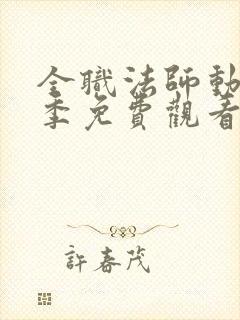 全職法師動
季免費觀看
許春茂